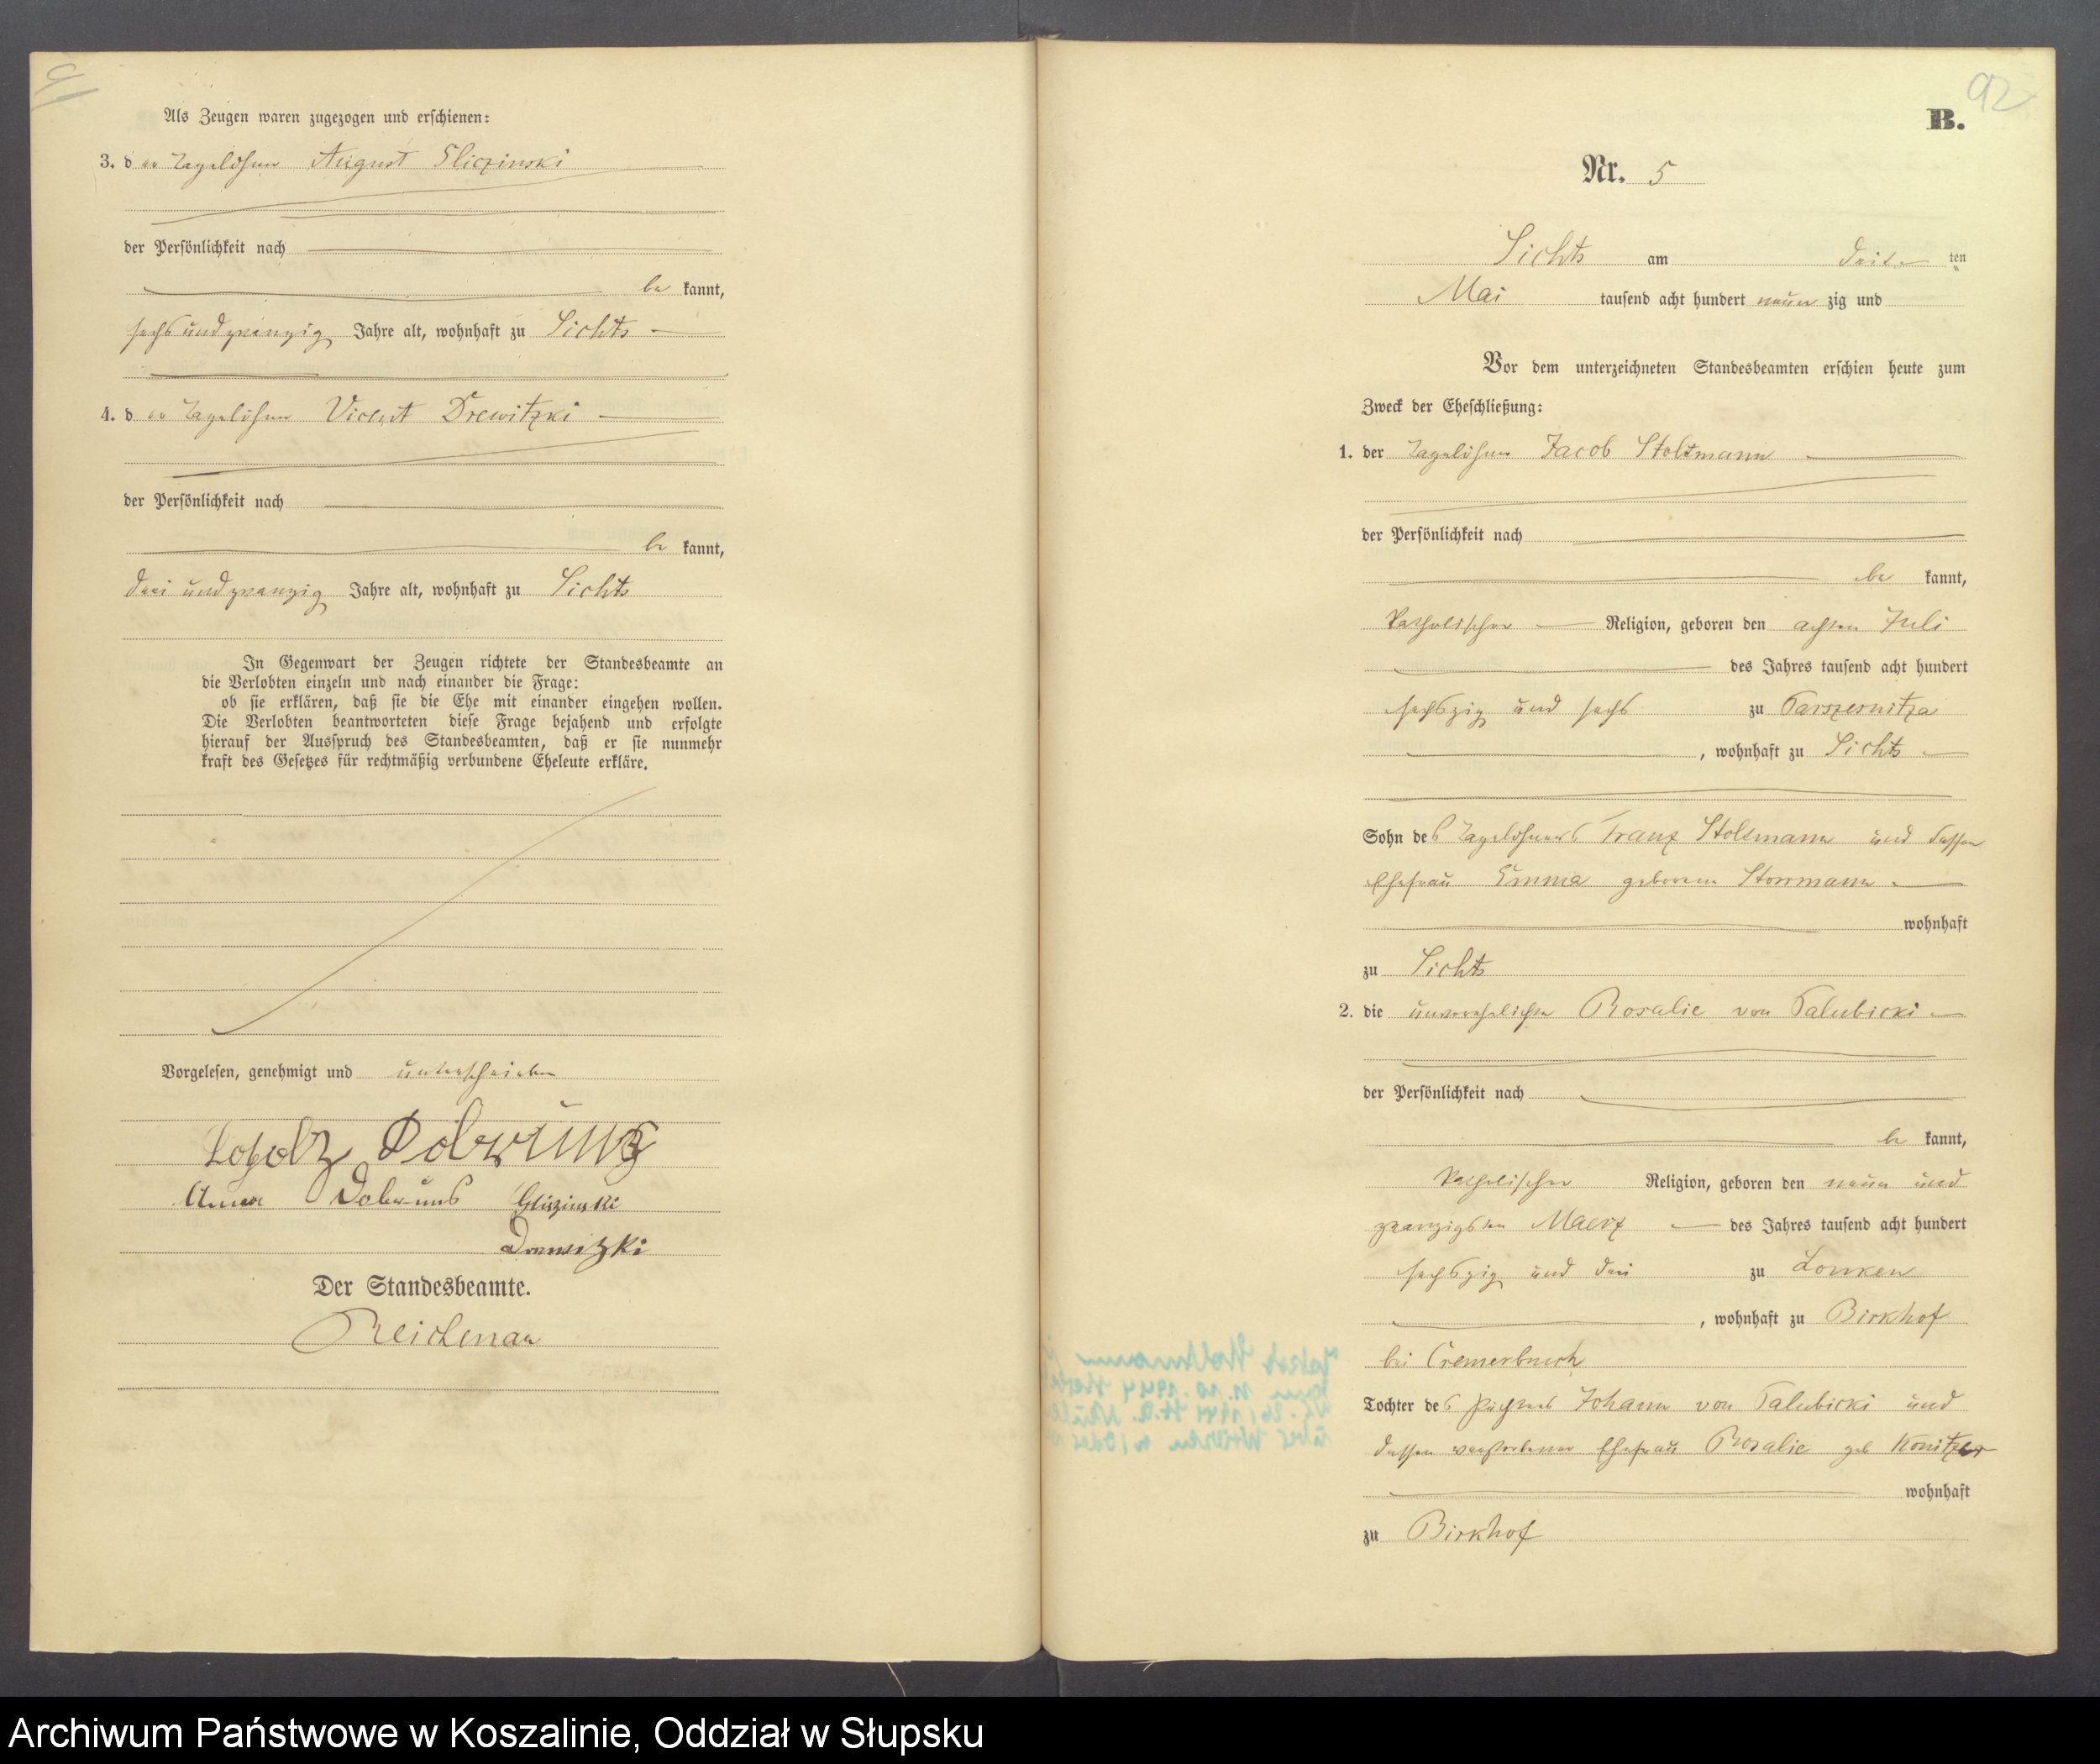 Als Zeugen waren zugezogen und erschienen:
3. der Tagelöhner August Gliczinski
der Persönlichkeit nach
be kannt,
sechs und zwanzig Jahre alt, wohnhaft zu Sichts
4. der Tagelöhner Vicent Drewitzki
der Persönlichkeit nach
be kannt,
drei und zwanzig Jahre alt, wohnhaft zu Sichts
In Gegenwart der Zeugen richtete der Standesbeamte an
die Verlobten einzeln und nach einander die Frage:
ob sie erklären, daß sie die Ehe mit einander eingehen wollen.
Die Verlobten beantworteten diese Frage bejahend und erfolgte
hierauf der Ausspruch des Standesbeamten, daß er sie nunmehr
kraft des Gesetzes für rechtmäßig verbundene Eheleute erkläre.
Vorgelesen, genehmigt und unterschrieben
Anna
Gliszinski
Der Standesbeamte.
92
B.
Nr. 5
Sichts am ten
Mai tausend acht hundert neun zig und
Vor dem unterzeichneten Standesbeamten erschien heute zum
Zweck der Eheschließung:
1. der Tagelöhner Jacob Stoltmann
der Persönlichkeit nach
be kannt,
katholischer Religion, geboren den achten Juli
des Jahres tausend acht hundert
sechszig und sechs zu
, wohnhaft zu Sichts
Sohn des Tagelöhners Franz Stoltmann und dessen
Ehefrau Emma geborene Storrmann
wohnhaft
zu Sichts
2. die unverehelichte Rosalie von Palubicki
der Persönlichkeit nach
be kannt,
katholischer Religion, geboren den neun und
zwanzigsten Maerz des Jahres tausend acht hundert
sechszig und drei zu Lonken
, wohnhaft zu Birkhof
bei Cremerbruch
Tochter des Pächters Johann von Palubicki und
dessen verstorbener Ehefrau Rosalie geb Konitzer
wohnhaft
zu Birkhof
Archiwum Państwowe w Koszalinie, Oddział w Słupsku